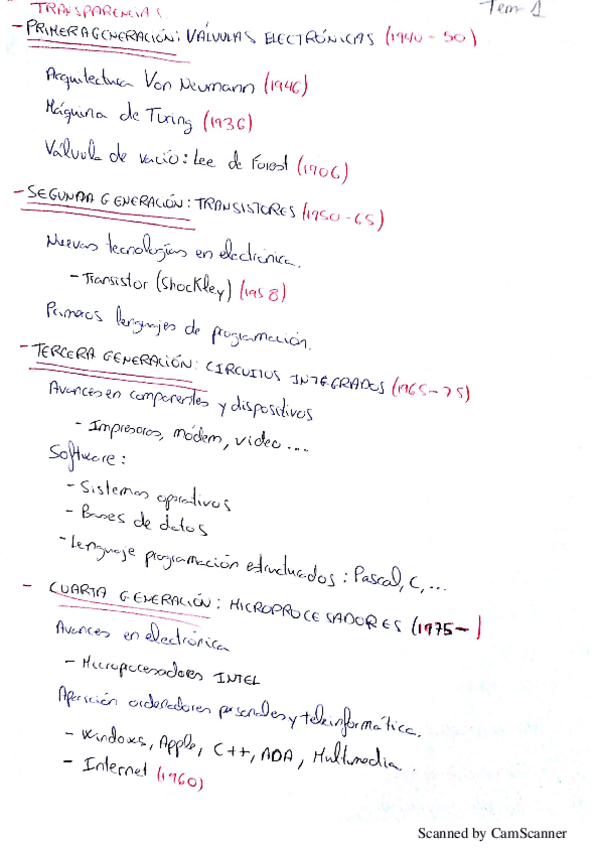 TRANSPARENCIAS
Tema 1
- PRIMERA GENERACIÓN: VÁLVULAS ELECTRÓNICAS (1940 - 50)
Arquitectura Von Neumann (1946)
Máquina de Turing (1936)
Válvula de vacío: Lee de Forest (1906)
- SEGUNDA GENERACIÓN: TRANSISTORES (1950 - 65)
Nuevas tecnologías en electrónica.
- Transistor (Shockley) (1958)
Primeros lenguajes de programación.
- TERCERA GENERACIÓN: CIRCUITOS INTEGRADOS (1965 - 75)
Avances en componentes y dispositivos
- Impresoras, módem, video ....
Software:
- Sistemas operativos
- Bases de datos
- Lenguaje programación estructurados: Pascal, C, ...
- CUARTA GENERACIÓN: MICROPROCESADORES (1975 - )
Avances en electrónica
- Microprocesadores INTEL
Aparición ordenadores personales y teleinformática.
- Windows, Apple, C++, ADA, Multimedia.
- Internet (1960)
Scanned by CamScanner